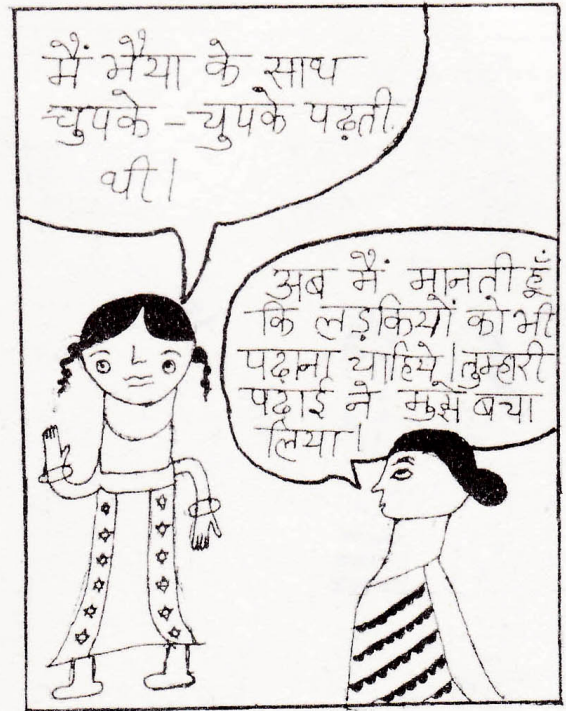 मैं भैया के साथ
चुपके - चुपके पढ़ती
थी।
अब मैं मानती हूँ
कि लड़कियों को भी
पढ़ाना चाहिये। तुम्हारी
पढ़ाई ने मुझे बचा
लिया।